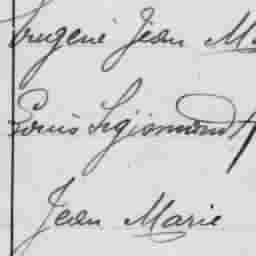 Eugène Jean
Louis Sigismond
Jean Marie